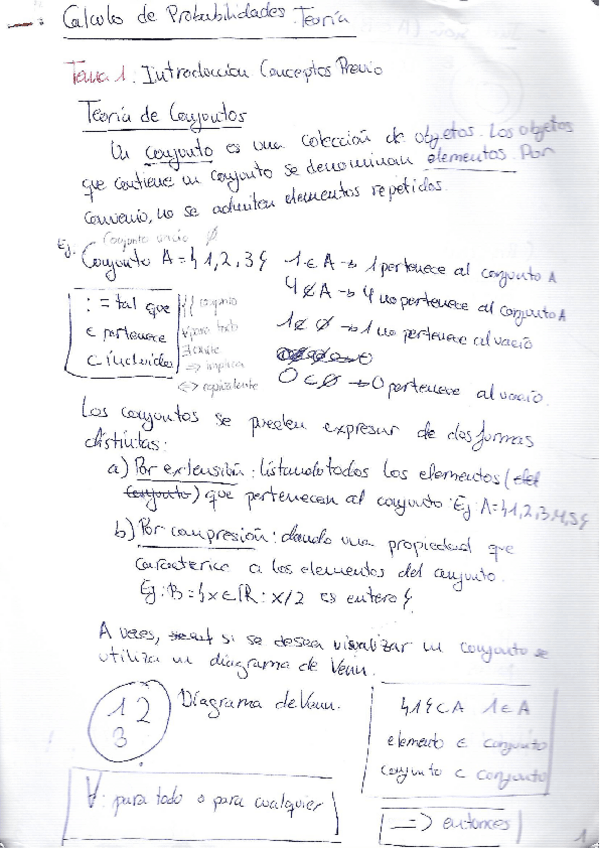 Calculo de Probabilidades. Teoría
Tema 1: Introduccion Conceptos Previo
Teoría de Conjuntos
Un conjunto es una colección de objetos. Los objetos
que contiene un conjunto se denominan elementos. Por
convenio, no se admiten elementos repetidos.
Conjunto vacio ∅
Ej: Conjunto A = {1, 2, 3} 1 ∈ A → 1 pertenece al conjunto A
4 ∉ A → 4 no pertenece al conjunto A
: = tal que {} conjunto
1 ∉ ∅ → 1 no pertenece al vacío
∈ pertenece ∀ para todo
∃ existe
⊂ incluido => implica
0 ⊂ ∅ → 0 pertenece al vacío.
<=> equivalente
Los conjuntos se pueden expresar de dos formas
distintas:
a) Por extensión: listando todos los elementos (del
conjunto) que pertenecen al conjunto Ej: A={1,2,3,4,5}
b) Por compresión: dando una propiedad que
caracterice a los elementos del conjunto.
Ej: B = {x ∈ ℝ : x/2 es entero}.
A veces, si se desea visualizar un conjunto se
utiliza un diagrama de Venn.
1 2
3
Diagrama de Venn.
{1} ⊂ A 1 ∈ A
elemento ∈ conjunto
conjunto ⊂ conjunto
∀: para todo o para cualquier
=> entonces
1